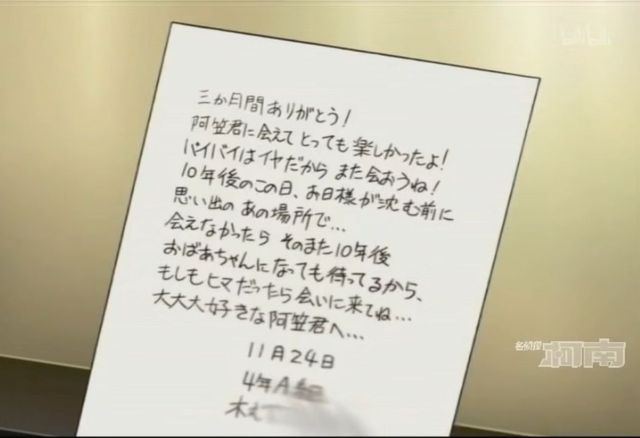 bilibili
三か月間ありがとう!
阿笠君に会えてとっても楽しかったよ!
バイバイはイヤだから また会おうね!
10年後のこの日、お日様が沈む前に
思い出の あの場所で…
会えなかったら そのまた10年後
おばあちゃんになっても待ってるから、
もしもヒマだったら会いに来てね…
大大大好きな阿笠君へ…
11月24日
4年A組
木え
名侦探
柯南